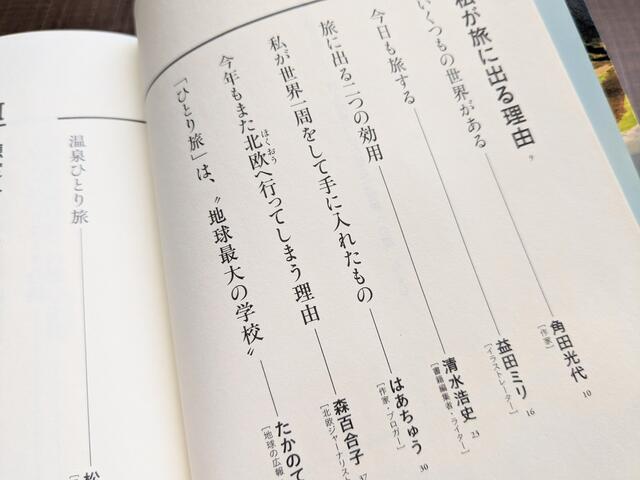 私が旅に出る理由 9
いくつもの世界がある 角田光代 [作家] 10
今日も旅する 益田ミリ [イラストレーター] 16
旅に出る二つの効用 清水浩史 [書籍編集者・ライター] 23
私が世界一周をして手に入れたもの はあちゅう [作家・ブロガー] 30
今年もまた北欧へ行ってしまう理由 森百合子 [北欧ジャーナリスト] 37
ほくおう
「ひとり旅」は、〝地球最大の学校〟 たかのて [地球の広報
温泉ひとり旅 松